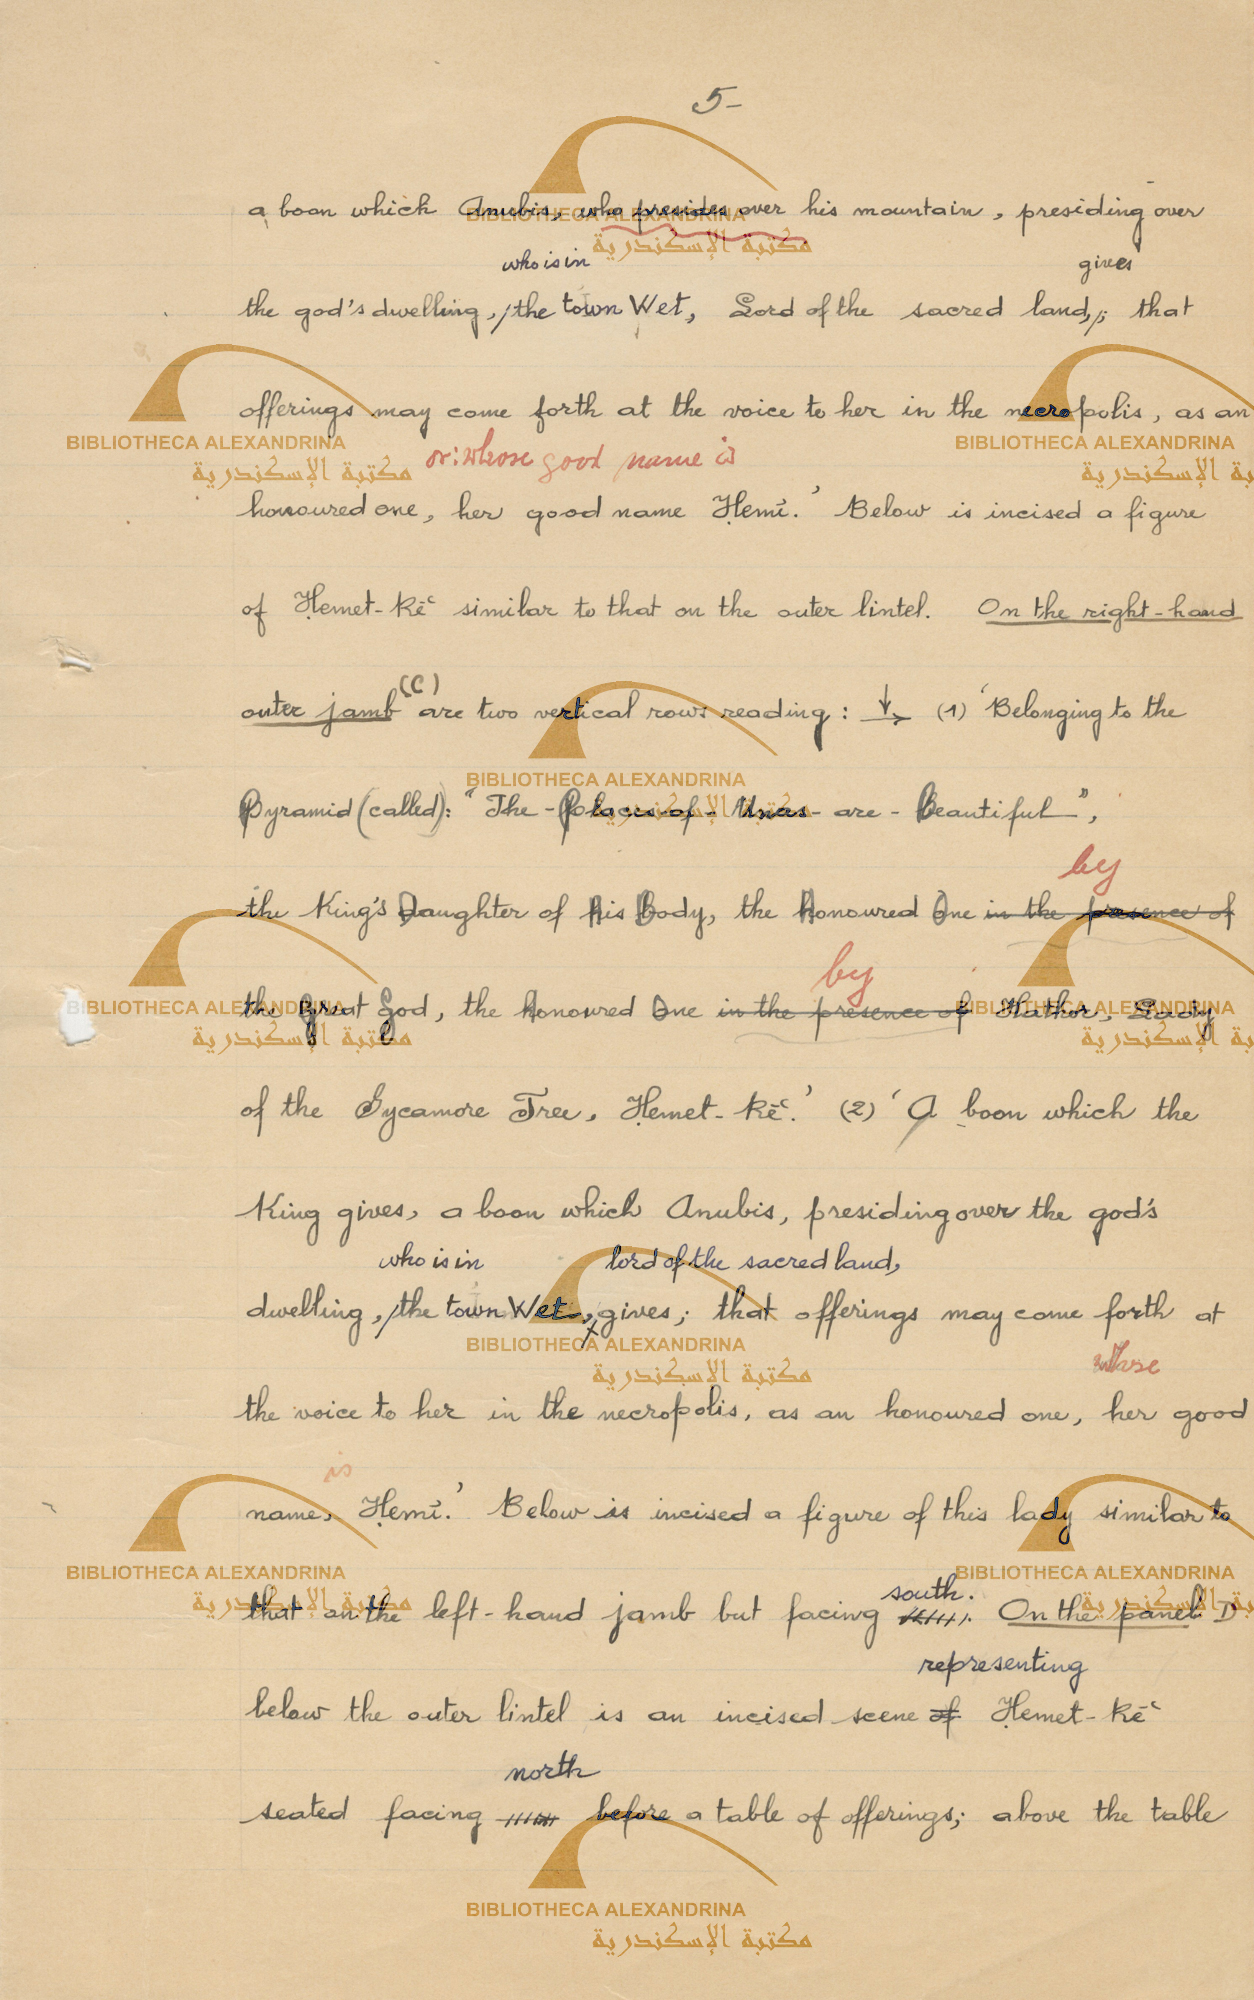 5-
a boon which Anubis, who presides over his mountain, presiding over
who is in gives
the god's dwelling, / the town Wet, Lord of the sacred land,/; that
offerings may come forth at the voice to her in the necropolis, as an
or: whose good name is
honoured one, her good name Ḥemỉ.' Below is incised a figure
of Ḥemet-Rēʿ similar to that on the outer lintel. On the right-hand
(C)
outer jamb are two vertical rows reading: ↓→ (1) 'Belonging to the
Pyramid (called): "The-Places-of-Unas-are-Beautiful",
by
the King's Daughter of His Body, the Honoured One in the presence of
by
the Great God, the Honoured One in the presence of Hathor, Lady
of the Sycamore Tree, Ḥemet-Rēʿ.' (2) 'A boon which the
King gives, a boon which Anubis, presiding over the god's
who is in lord of the sacred land,
dwelling, / the town Wet, gives; that offerings may come forth at
whose
the voice to her in the necropolis, as an honoured one, her good
is
name, Ḥemỉ.' Below is incised a figure of this lady similar to
south.
that on the left-hand jamb but facing On the panel D
representing
below the outer lintel is an incised scene of Ḥemet-Rēʿ
north
seated facing before a table of offerings; above the table
BIBLIOTHECA ALEXANDRINA
مكتبة الإسكندرية
BIBLIOTHECA ALEXANDRINA
مكتبة الإسكندرية
BIBLIOTHECA ALEXANDRINA
مكتبة الإسكندرية
BIBLIOTHECA ALEXANDRINA
مكتبة الإسكندرية
BIBLIOTHECA ALEXANDRINA
مكتبة الإسكندرية
BIBLIOTHECA ALEXANDRINA
مكتبة الإسكندرية
BIBLIOTHECA ALEXANDRINA
مكتبة الإسكندرية
BIBLIOTHECA ALEXANDRINA
مكتبة الإسكندرية
BIBLIOTHECA ALEXANDRINA
مكتبة الإسكندرية
BIBLIOTHECA ALEXANDRINA
مكتبة الإسكندرية